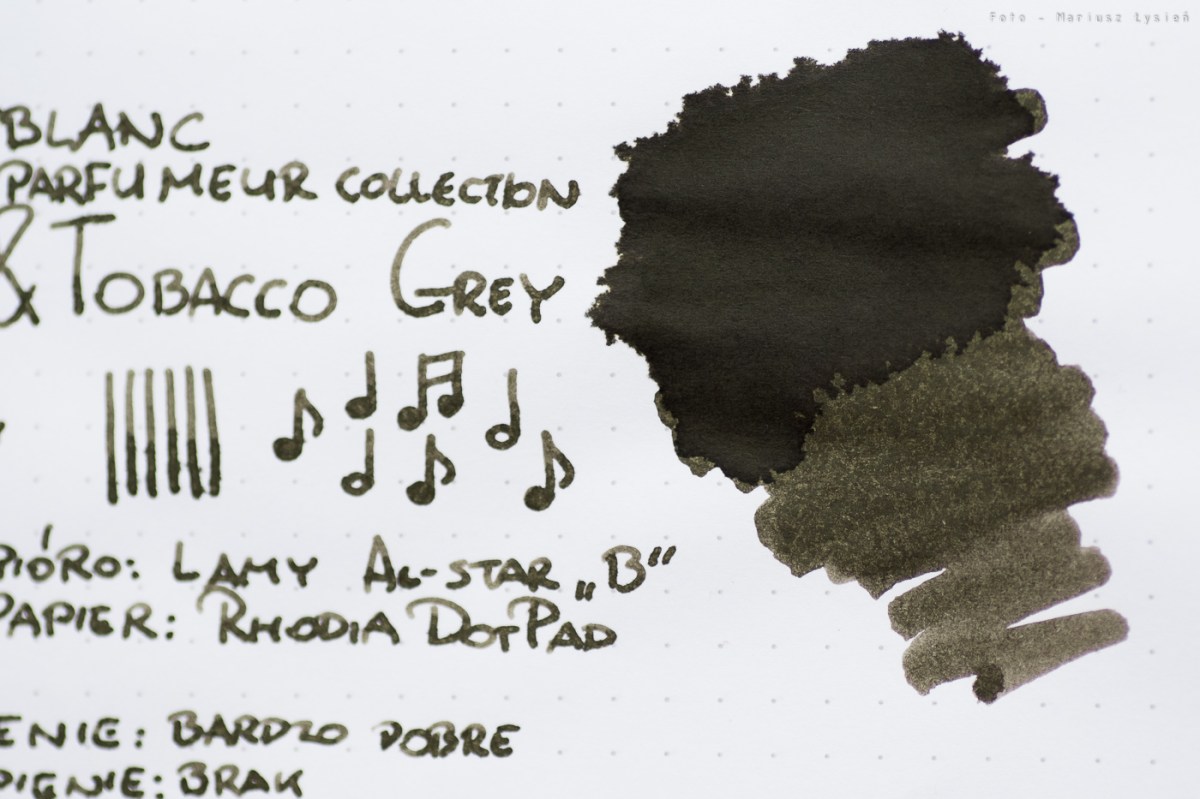 Foto - Mariusz Łysień
BLANC
PARFUMEUR COLLECTION
& TOBACCO GREY
PIÓRO: LAMY AL-STAR „B”
PAPIER: RHODIA DOTPAD
ENIE: BARDZO DOBRE
PIENIE: BRAK